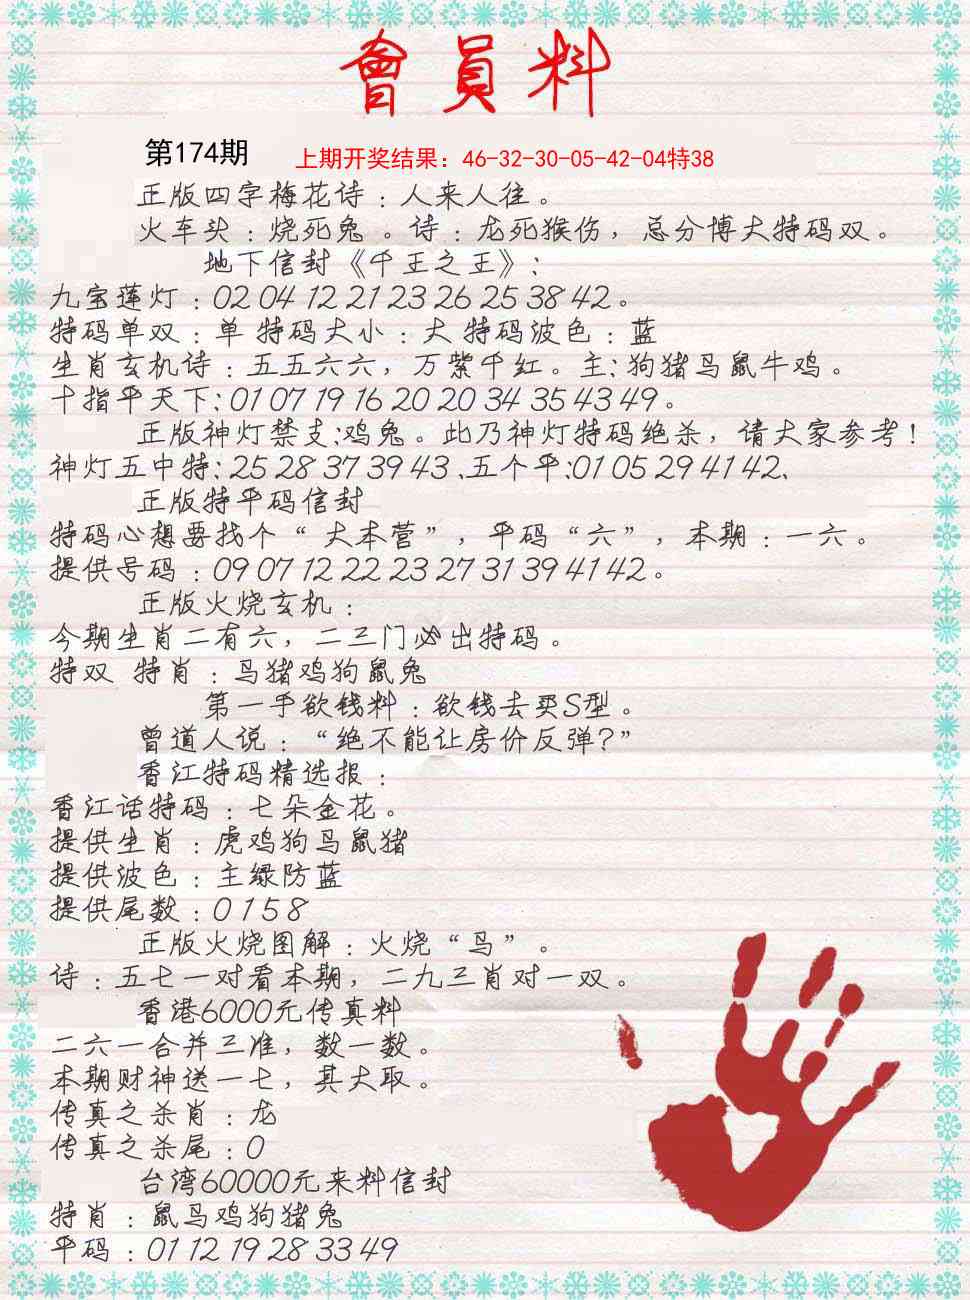 會員料
第174期 上期开奖结果：46-32-30-05-42-04特38
正版四字梅花诗：人来人往。
火车头：烧死兔。诗：龙死猴伤，总分博大特码双。
地下信封《千王之王》：
九宝莲灯：02 04 12 21 23 26 25 38 42。
特码单双：单 特码大小：大 特码波色：蓝
生肖玄机诗：五五六六，万紫千红。主：狗猪马鼠牛鸡。
十指平天下：01 07 19 16 20 20 34 35 43 49。
正版神灯禁支:鸡兔。此乃神灯特码绝杀，请大家参考！
神灯五中特：25 28 37 39 43 、五个平:01 05 29 41 42、
正版特平码信封
特码心想要找个“大本营”，平码“六”，本期：一六。
提供号码：09 07 12 22 23 27 31 39 41 42。
正版火烧玄机：
今期生肖二有六，二三门必出特码。
特双 特肖：马猪鸡狗鼠兔
第一手欲钱料：欲钱去买S型。
曾道人说：“绝不能让房价反弹?”
香江特码精选报：
香江话特码：七朵金花。
提供生肖：虎鸡狗马鼠猪
提供波色：主绿防蓝
提供尾数：0 1 5 8
正版火烧图解：火烧“马”。
诗：五七一对看本期，二九三肖对一双。
香港6000元传真料
二六一合并三准，数一数。
本期财神送一七，其大取。
传真之杀肖：龙
传真之杀尾：0
台湾60000元来料信封
特肖：鼠马鸡狗猪兔
平码：01 12 19 28 33 49